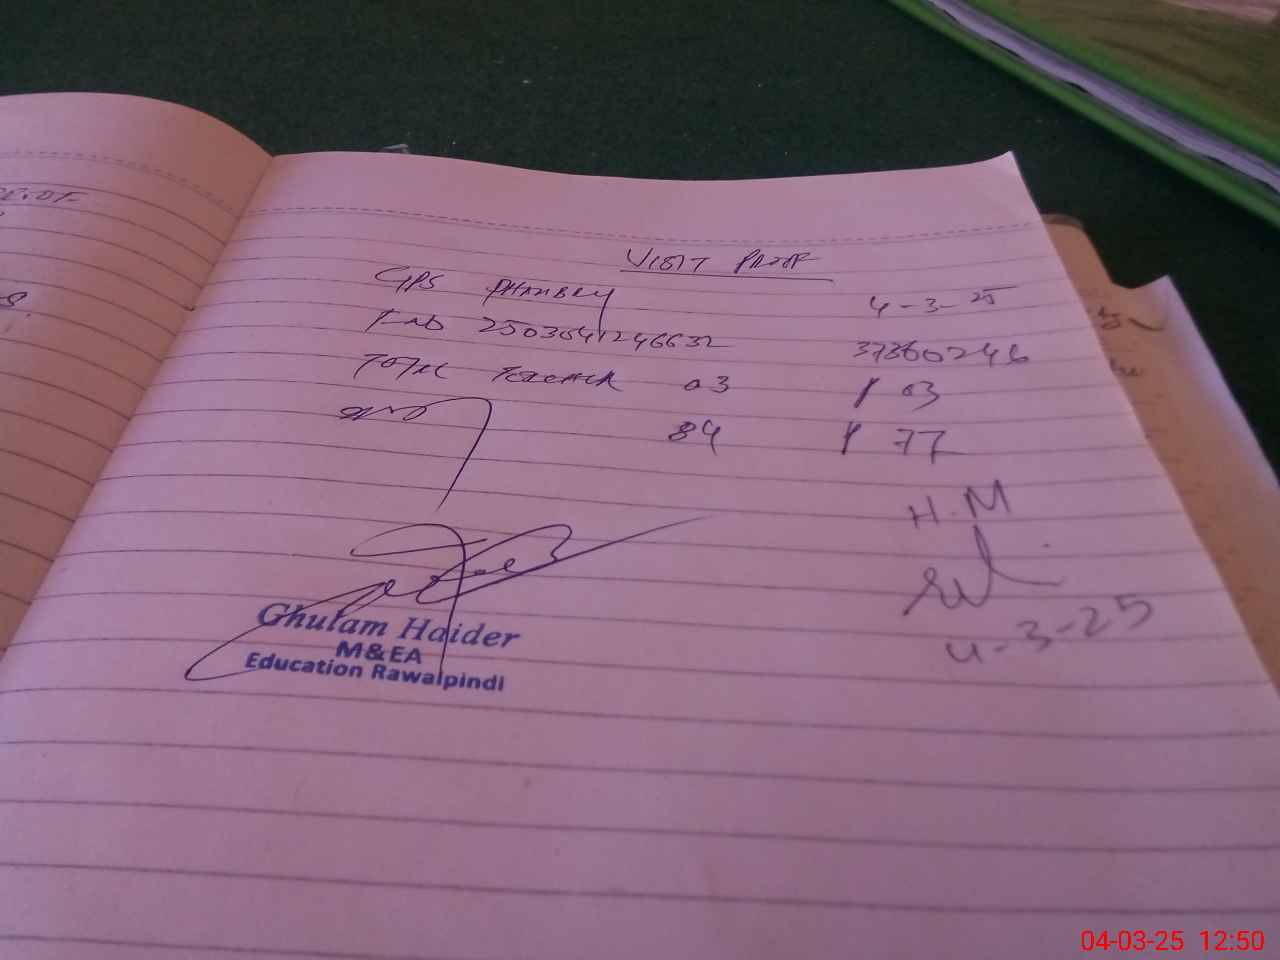 VISIT PROOF
GPS PHAMBLY 4-3-25
TAB 2503041246632 37360246
TOTAL TEACHER 03 P 03
84 P 77
H.M
4-3-25
Ghulam Haider
M&EA
Education Rawalpindi
04-03-25 12:50